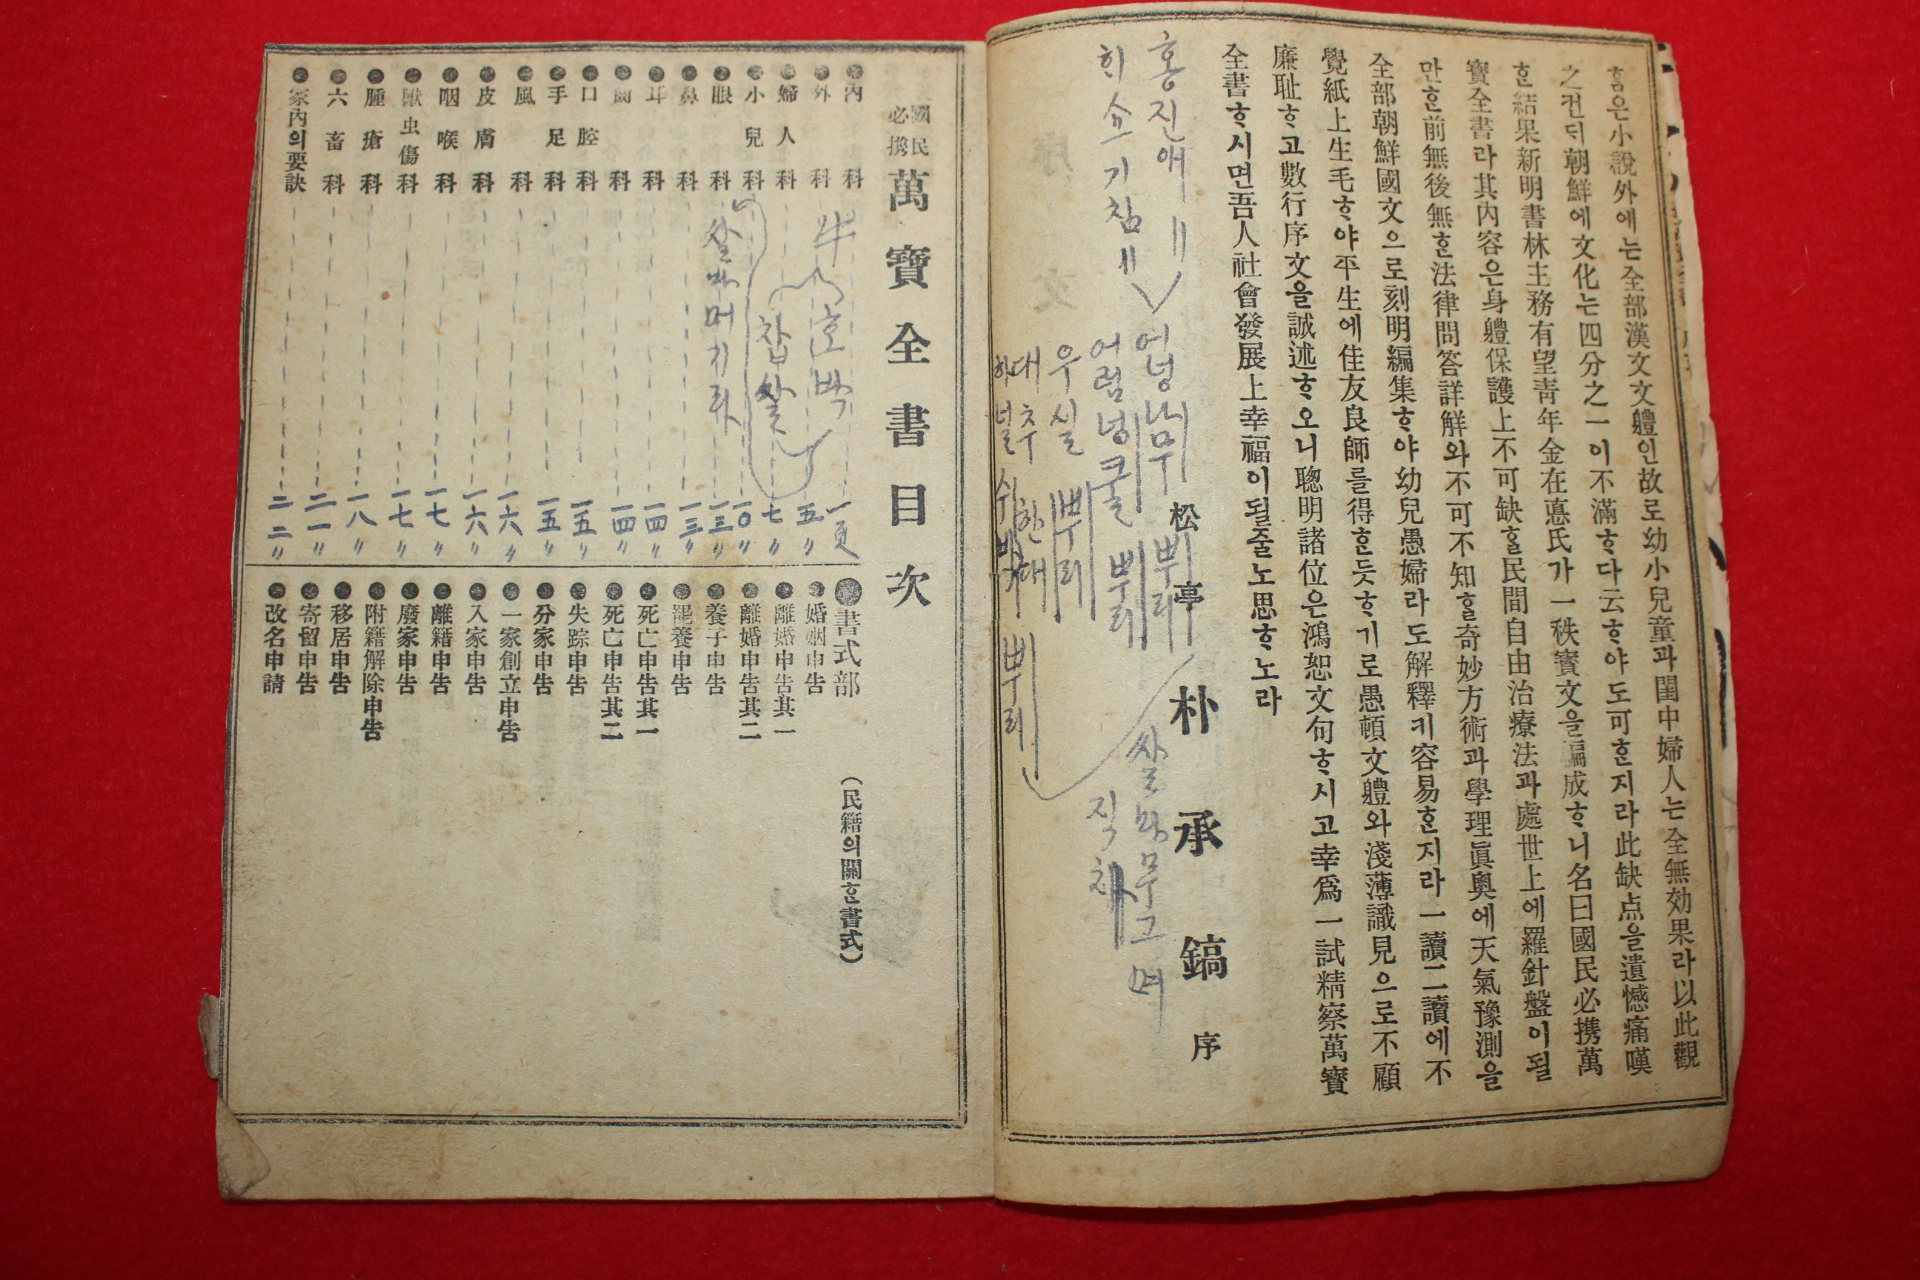 홈은小說外에는全部漢文文軆인故로幼小兒童과閨中婦人는全無効果라以此觀
之컨듸朝鮮에文化는四分之一이不滿ᄒᆞ다云ᄒᆞ야도可ᄒᆞᆫ지라此缺点을遺憾痛嘆
ᄒᆞᆫ結果新明書林主務有望靑年金在悳氏가一秩寶文을編成ᄒᆞ니名曰國民必携萬
寶全書라其內容은身軆保護上不可缺ᄒᆞᆯ民間自由治療法과處世上에羅針盤이될
만ᄒᆞᆫ前無後無ᄒᆞᆫ法律問答詳解와不可不知ᄒᆞᆯ奇妙方術과學理眞奧에天氣豫測을
全部朝鮮國文으로刻明編集ᄒᆞ야幼兒愚婦라도解釋키容易ᄒᆞᆫ지라一讀二讀에不
覺紙上生毛ᄒᆞ야平生에佳友良師를得ᄒᆞᆫ듯ᄒᆞ기로愚頓文軆와淺薄識見으로不顧
廉耻ᄒᆞ고數行序文을誠述ᄒᆞ오니聰明諸位은鴻恕文句ᄒᆞ시고幸爲一試精察萬寶
全書ᄒᆞ시면吾人社會發展上幸福이될줄노思ᄒᆞ노라
松亭 朴承鎬 序
홍진애 〃
기침 〃
우실 뿌리
대추
國民必携 萬寶全書目次
內科 一頁
外科 五〃
婦人科 七〃
小兒科 一〇〃
眼科 一三〃
鼻科 一三〃
耳科 一四〃
齒科 一四〃
口腔科 一五〃
手足科 一五〃
風科 一六〃
皮膚科 一六〃
咽喉科 一七〃
獸虫傷科 一七〃
腫瘡科 一八〃
六畜科 二一〃
家內의要訣 二二〃
호박
찹쌀
書式部 (民籍의關ᄒᆞᆫ書式)
婚姻申告
離婚申告其一
離婚申告其二
養子申告
罷養申告
死亡申告其一
死亡申告其二
失踪申告
分家申告
一家創立申告
入家申告
離籍申告
廢家申告
附籍解除申告
移居申告
寄留申告
改名申請